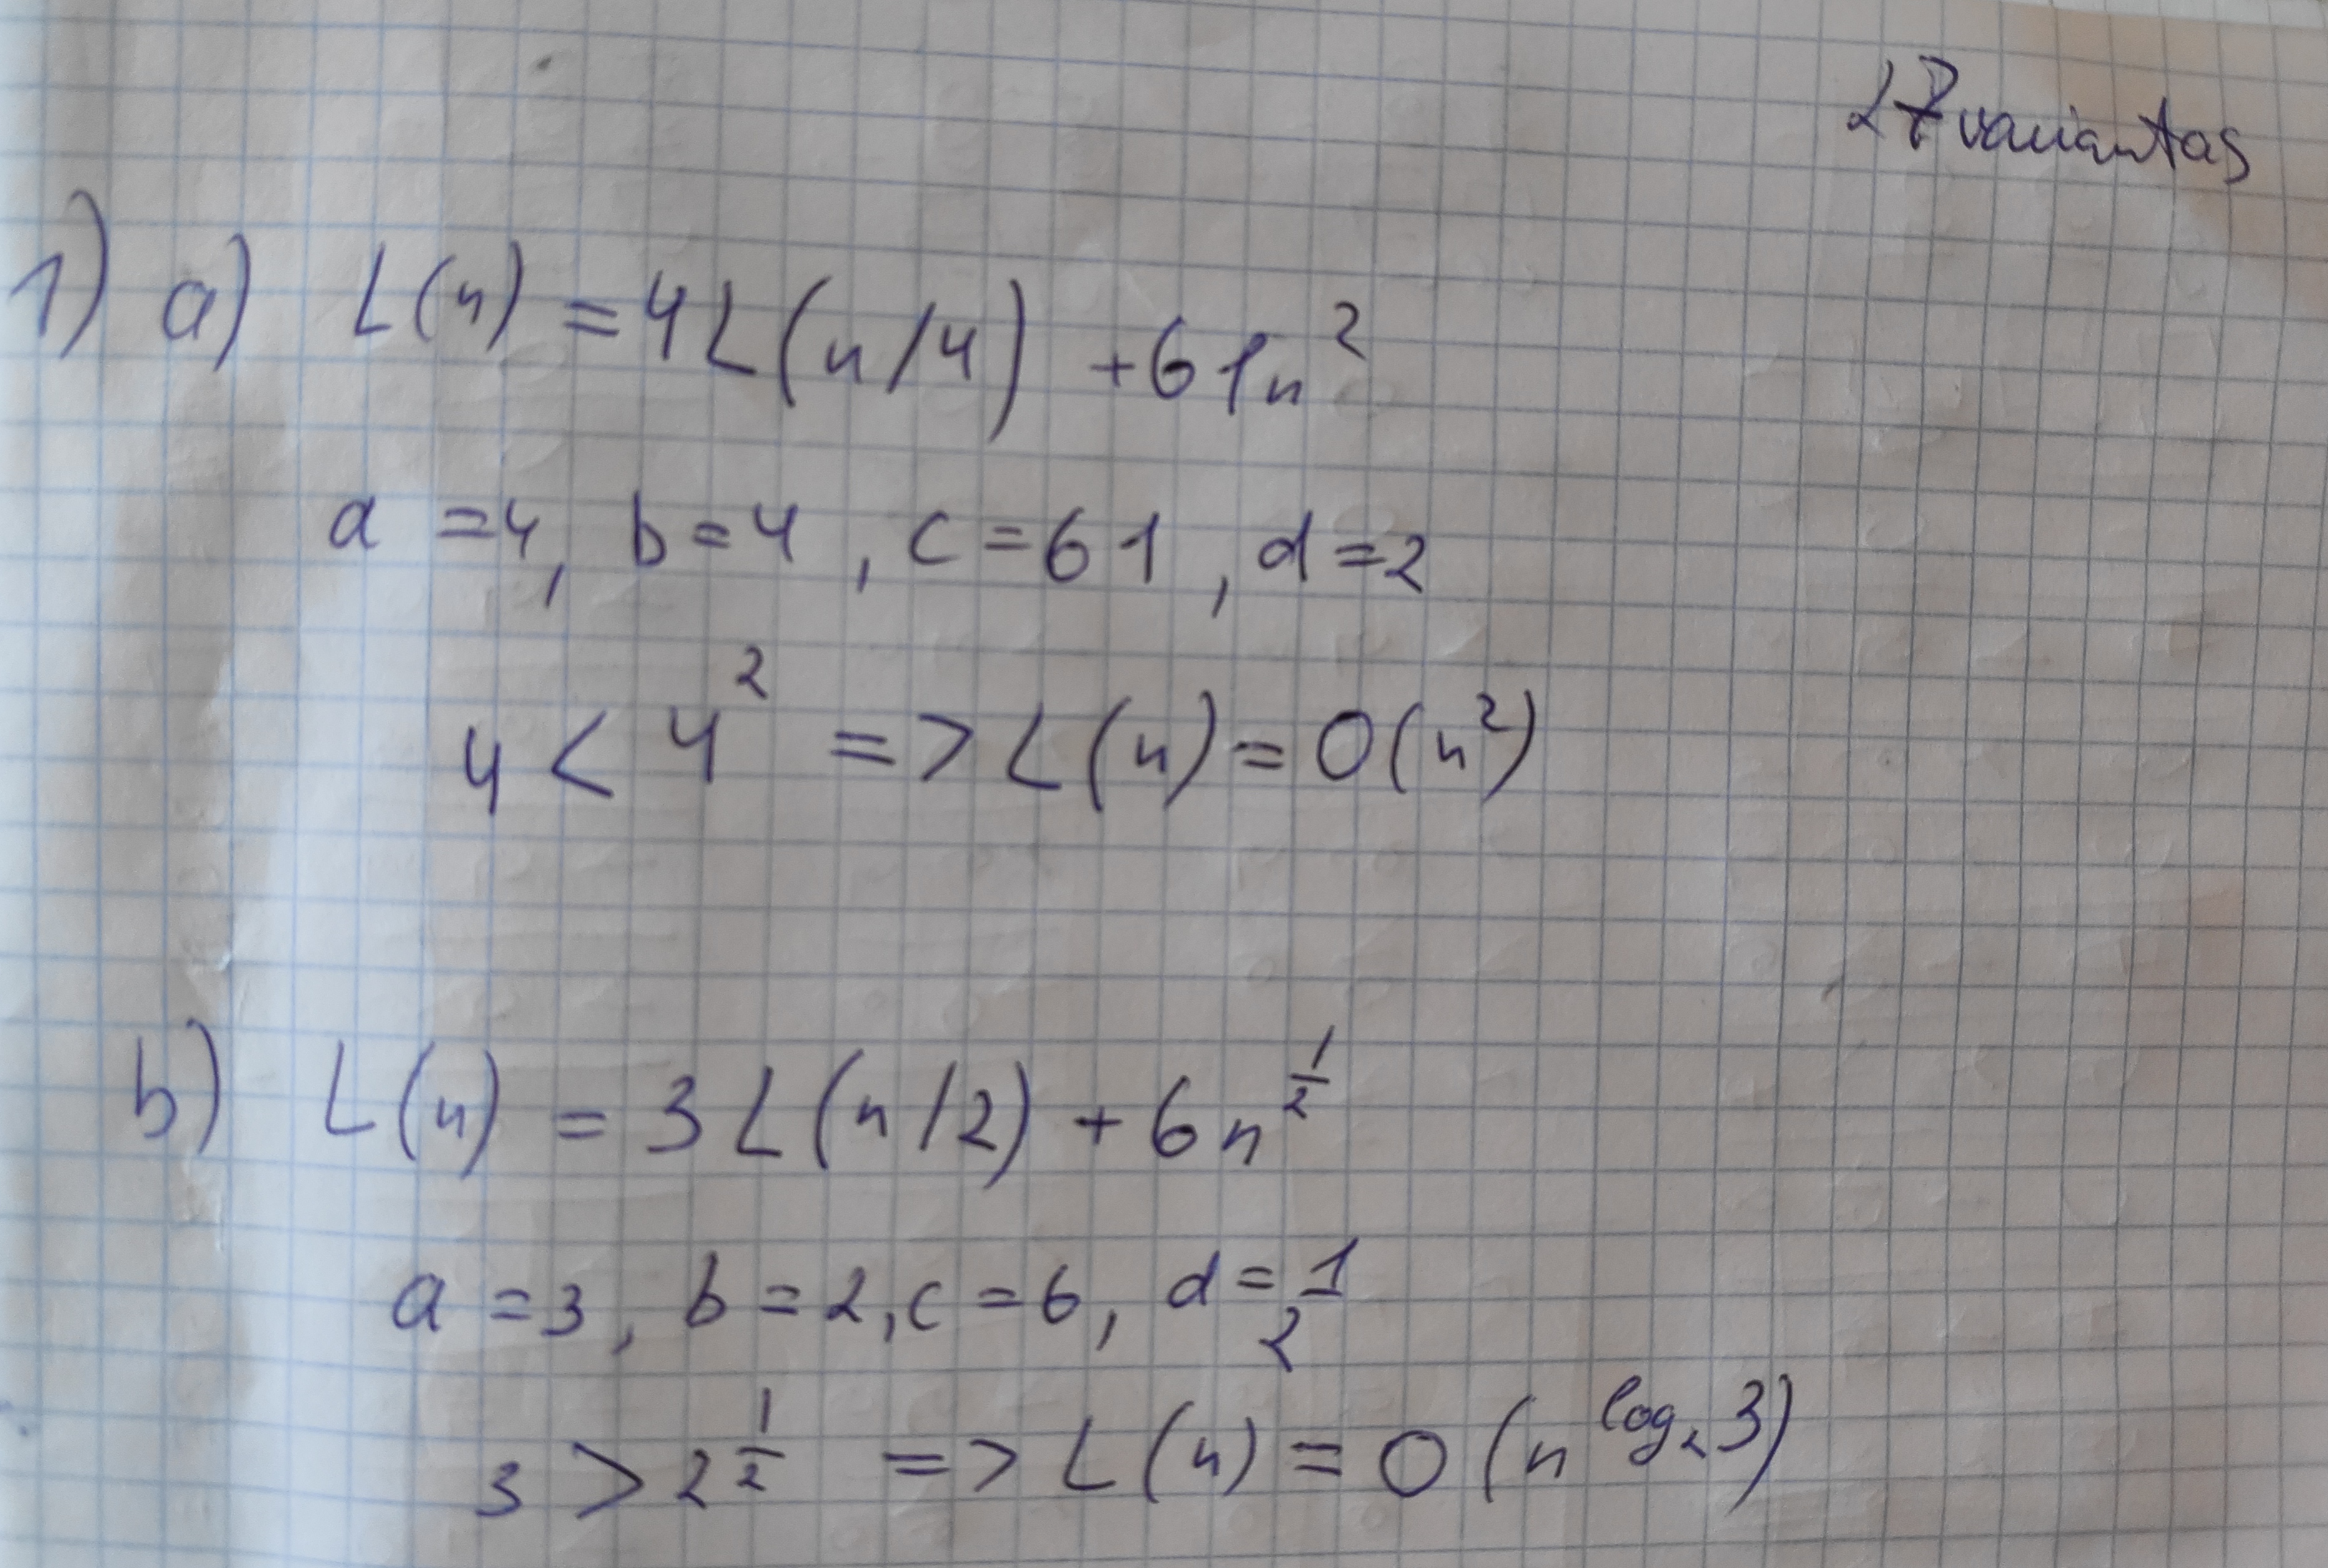 27 variantas
1) a) L(n) = 4L(n/4) + 61n²
a = 4, b = 4, c = 61, d = 2
4 < 4² => L(n) = O(n²)
b) L(n) = 3L(n/2) + 6n^(1/2)
a = 3, b = 2, c = 6, d = 1/2
3 > 2^(1/2) => L(n) = O(n^(log₂3))